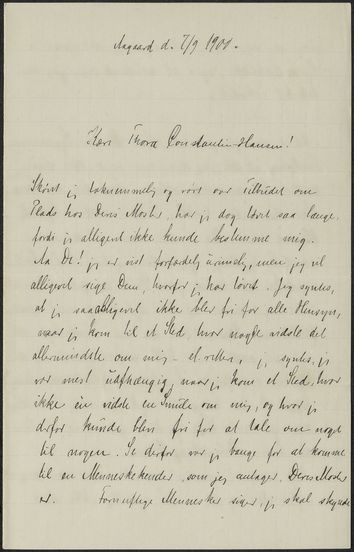 Aagaard d. 7/9 1900.
Kære Thora Constantin-Hansen!
Skønt jeg taknemmelig og rørt over Tilbudet om
Plads hos Deres Moster, har jeg dog tøvet saa længe,
fordi jeg alligevel ikke kunde bestemme mig.
Aa De! jeg er vist forfærdelig urimelig, men jeg vil
alligevel sige Dem, hvorfor jeg har tøvet. Jeg syntes,
at jeg saa alligevel ikke blev fri for alle Hensyn,
naar jeg kom til et Sted, hvor nogle vidste det
allermindste om mig – et eller, jeg syntes, jeg
var mest uafhængig, naar jeg kom et Sted, hvor
ikke én vidste en Smule om mig, og hvor jeg
derfor kunde blive fri for at tale om noget
til nogen. Se derfor var jeg bange for at komme
til en Menneskekender, som jeg antager, Deres Moster
er. Fornuftige Mennesker siger, jeg skal skynde